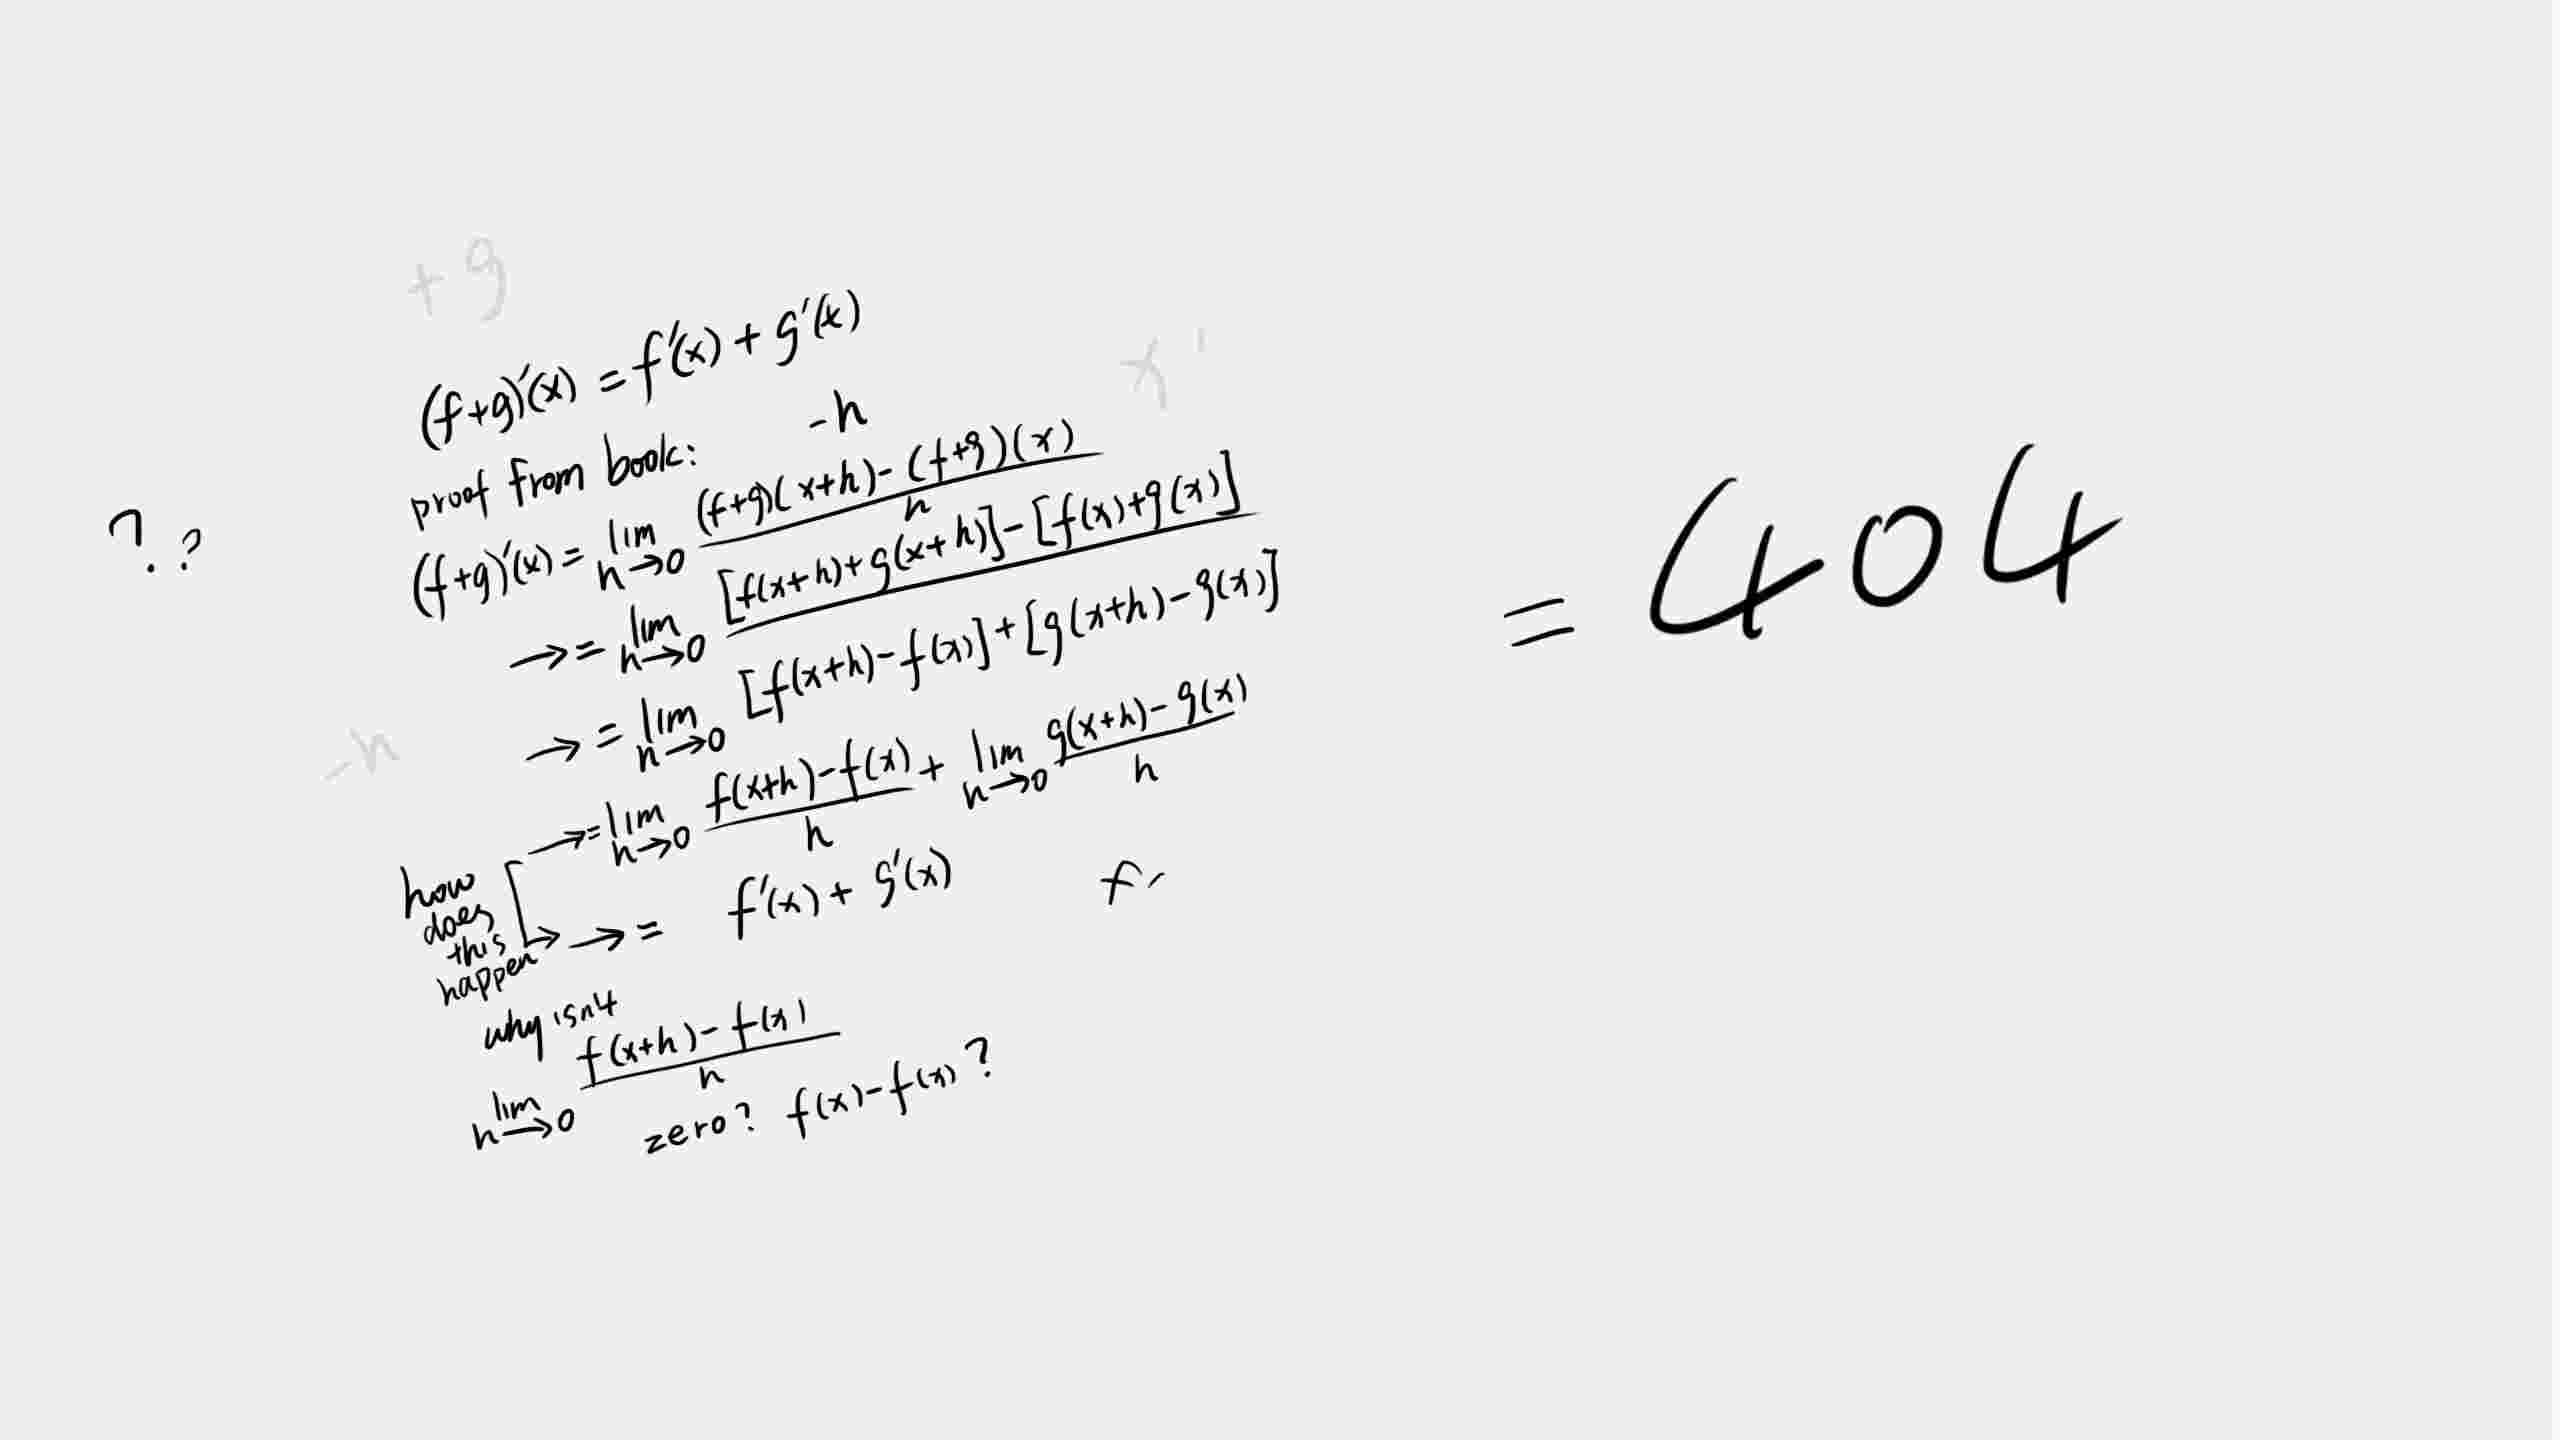 + g
(f+g)'(x) = f'(x) + g'(x)
x '
-h
proof from book:
? . ?
(f+g)'(x) = lim h→0 (f+g)(x+h) - (f+g)(x) / h
→ = lim h→0 [f(x+h)+g(x+h)] - [f(x)+g(x)]
= 404
→ = lim h→0 [f(x+h) - f(x)] + [g(x+h) - g(x)]
-h
→ = lim h→0 f(x+h) - f(x) / h + lim h→0 g(x+h) - g(x) / h
how
does
this
happen
→ = f'(x) + g'(x)
f
why isn4
lim h→0 f(x+h) - f(x) / h
zero? f(x) - f(x)?